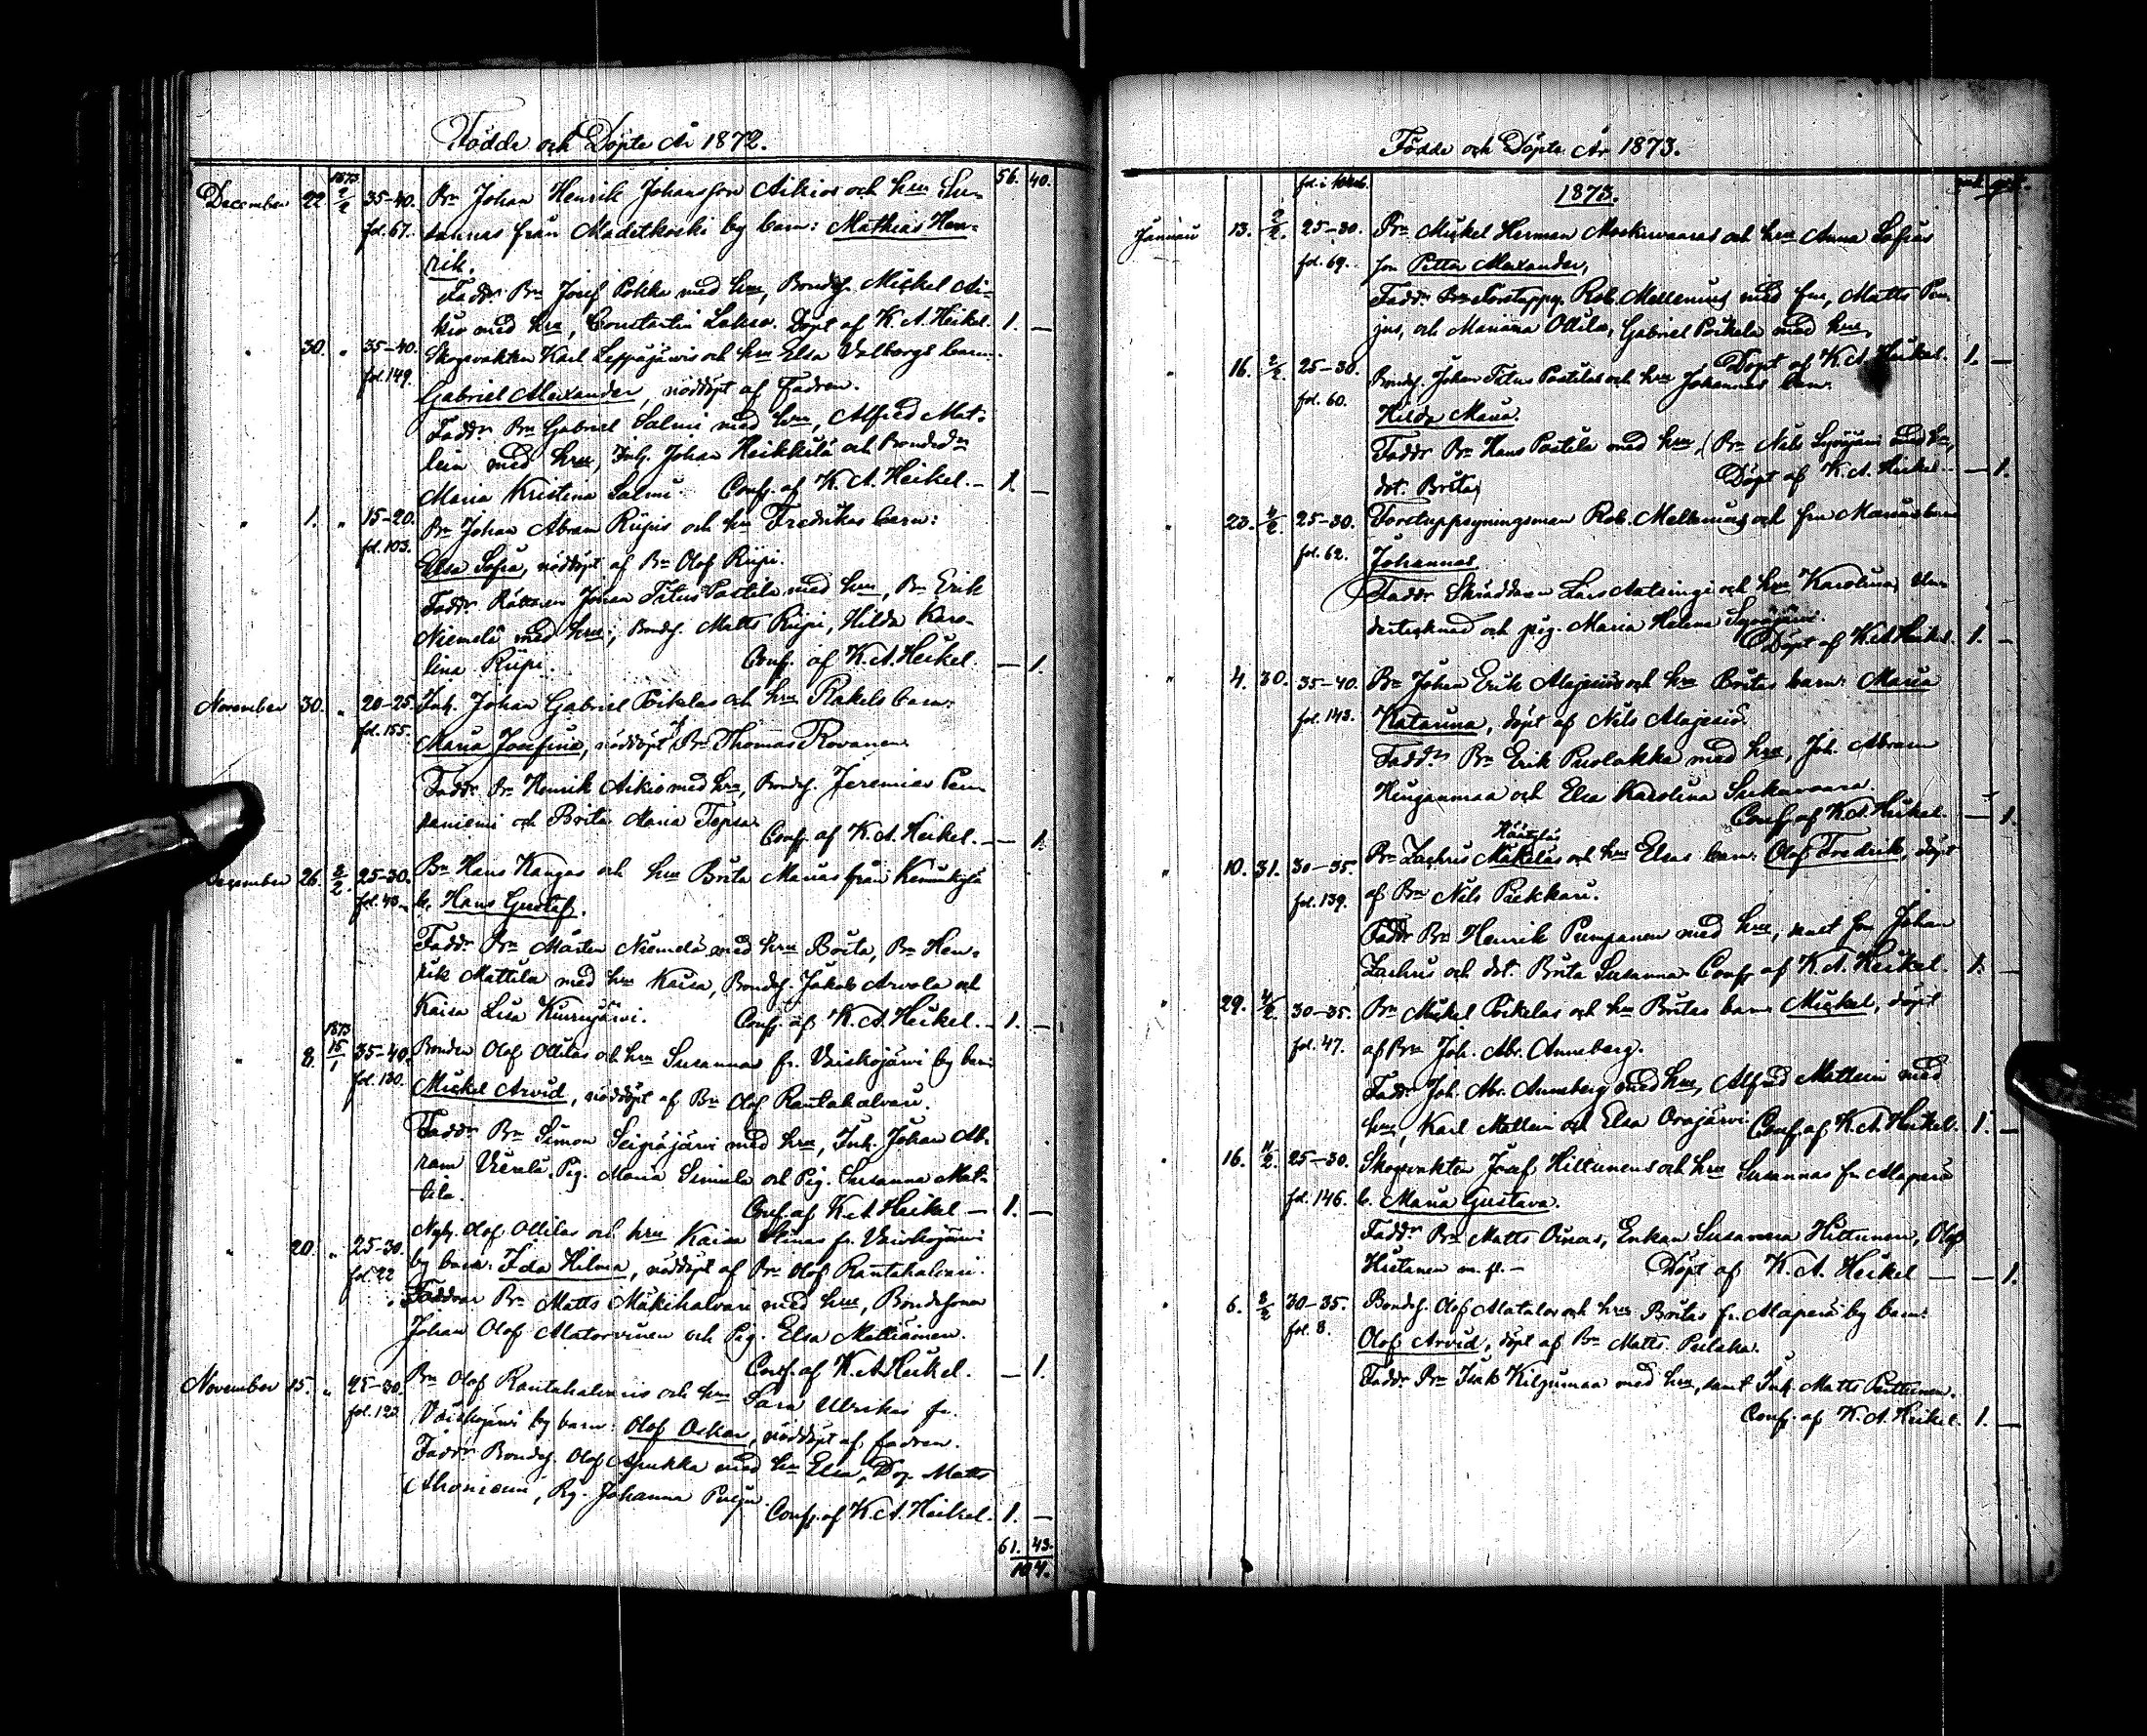 Födde och Döpte År 1872.
56. 40.
December 22. 1873 2/2 35-40. Bn Johan Henrik Johansson Aikios och hru Su-
fol. 67. sannas från Madetkoski by barn: Mathias Hen-
rik.
Faddr Bn Josef Pokka med hru, Bondes. Mickel Ai-
kio med hru, Constantin Lakso. Döpt af K. A. Heikel. 1. —
" 30. " 35-40. Skogsvakten Karl Leppäjärvis och hru Elsa Valborgs barn:
fol. 149. Gabriel Alexander, nöddöpt af Fadren.
Faddr Bn Gabriel Salmi med hru, Alfred Mat-
lein med hru, Inh. Johan Heikkilä och Bondedr
Maria Kristina Salmi. Conf. af K. A. Heikel. — 1. —
" 1. " 15-20. Bn Johan Abram Riipis och hru Fredrikas barn:
fol. 103. Elsa Sofia, nöddöpt af Bn Olof Riipi.
Faddr Johan Titus Postila med hru, Bn Erik
Niemelä med hru; Bondes. Matts Riipi, Hilda Karo-
lina Riipi. Conf. af K. A. Heikel. — 1.
November 30. " 20-25. Inh. Johan Gabriel Poikelas och hru Rakels barn:
fol. 155. Maria Josefina, nöddöpt af Bn Thomas Rovanen.
Faddr Bn Henrik Aikio med hru, Bondes. Jeremias Pem-
paniemi och Brita Maria Tepsa.
Conf. af K. A. Heikel. — 1.
December 26. 2/2. 25-30. Bn Hans Kangas och hru Brita Marias från Kemikylä
fol. 43. b. Hans Gustaf.
Faddr Bn Mårten Niemelä med hru Brita, Bn Hen-
rik Mattila med hru Kaisa, Bondes. Jakob Arvola och
Kaisa Lisa Kurrujärvi. Conf. af K. A. Heikel. — 1. —
" 8. 1873 15/1 35-40. Bonden Olof Ollilas och hru Susannas fr. Vaiskojärvi by barn:
fol. 130. Mickel Arvid, nöddöpt af Bn Olof Rautahalvari.
Faddr Bn Simon Seipäjärvi med hru, Inh. Johan Ab-
ram Vierelä, Pig. Maria Simula och Pig. Susanna Mat-
tila. Conf. af K. A. Heikel — 1. —
" 20. " 25-30. Nyb. Olof Ollilas och hru Kaisa Stinas fr. Vaiskojärvi
fol. 22 by barn: Ida Hilma, nöddöpt af Bn Olof Rautahalvari.
Faddrar Bn Matts Mäkihalvari med hru, Bondesonen
Johan Olof Alatorvinen och Pig. Elsa Mattiainen.
Conf. af K. A. Heikel. — 1.
November 15. " 25-30. Bn Olof Rautahalvaris och hru Sara Ulrikas fr.
fol. 122. Vaiskojärvi by barn: Olof Oskar, nöddöpt af fadren.
Faddr Bondes. Olof Apukka med hru Elsa, Drg. Matts
Ahoniemi, Pig. Johanna Pulju.
Conf. af K. A. Heikel. 1. —
61. 43.
104.
Födde och Döpte År 1873.
1873.
Januari 13. 2/2. 25-30. Bn Mickel Herman Moskuvaaras och hru Anna Sofias
fol. 69. son Petter Alexander,
Faddr Forstuppsy. Rob. Mellenius med fru, Matts Pom-
jus, och Mariana Ollila, Gabriel Poikela med hru,
Döpt af K. A. Heikel. 1. —
" 16. 2/2. 25-30. Bondes. Johan Titus Postilas och hru Johannas barn:
fol. 60. Hilda Maria.
Faddr Bn Hans Postila med hru, (Bn Nils Syväjärvi med hru,
dot. Brita) Döpt af K. A. Heikel. — 1.
" 23. 4/2. 25-30. Forstuppsyningsman Rob. Mellenius och fru Marias barn
fol. 62. Johannes
Faddr Skräddaren Lars Aatsingi och hru Karolina, Un-
dertecknad och pig. Maria Helena Syväjärvi.
Döpt af K. A. Heikel. 1. —
" 4. 30. 35-40. Bn Johan Erik Alajesiös och hru Britas barn: Maria
fol. 143. Katarina, döpt af Nils Alajesiö.
Faddr Bn Erik Puolakka med hru, Joh. Abram
Hinganmaa och Elsa Karolina Sukuvaara.
Conf. af K. A. Heikel. — 1.
" 10. 31. 30-35. Bn Zachris Mäkeläs och hru Elsas barn: Olof Fredrik, döpt
fol. 139. af Bn Nils Pokkari.
Faddr Bn Henrik Pumpanen med hru, samt son Johan
Zachris och dot. Brita Susanna. Conf. af K. A. Heikel. 1. —
" 29. 4/2. 30-35. Bn Mickel Poikelas och hru Britas barn Mickel, döpt
fol. 47. af Bn Joh. Abr. Anneberg.
Faddr Joh. Abr. Anneberg med hru, Alfred Matlein med
hru, Karl Matlein och Elsa Orajärvi. Conf. af K. A. Heikel. 1. —
" 16. 4/2. 25-30. Skogvakten Josef Hiltunens och hru Susannas fr. Alaperä
fol. 146. b. Maria Gustava.
Faddr Bn Matts Oinas, Enkan Susanna Hiltunen, Olof
Hietanen m. fl. — Döpt af K. A. Heikel — — 1.
" 6. 8/2 30-35. Bondes. Olof Alatalos och hru Britas fr. Alaperä by barn:
fol. 8. Olof Arvid, döpt af Bn Matts Pulska.
Faddr Bn Isak Kiljumaa med hru, samt Inh. Matts Perttunen.
Conf. af K. A. Heikel. 1. —